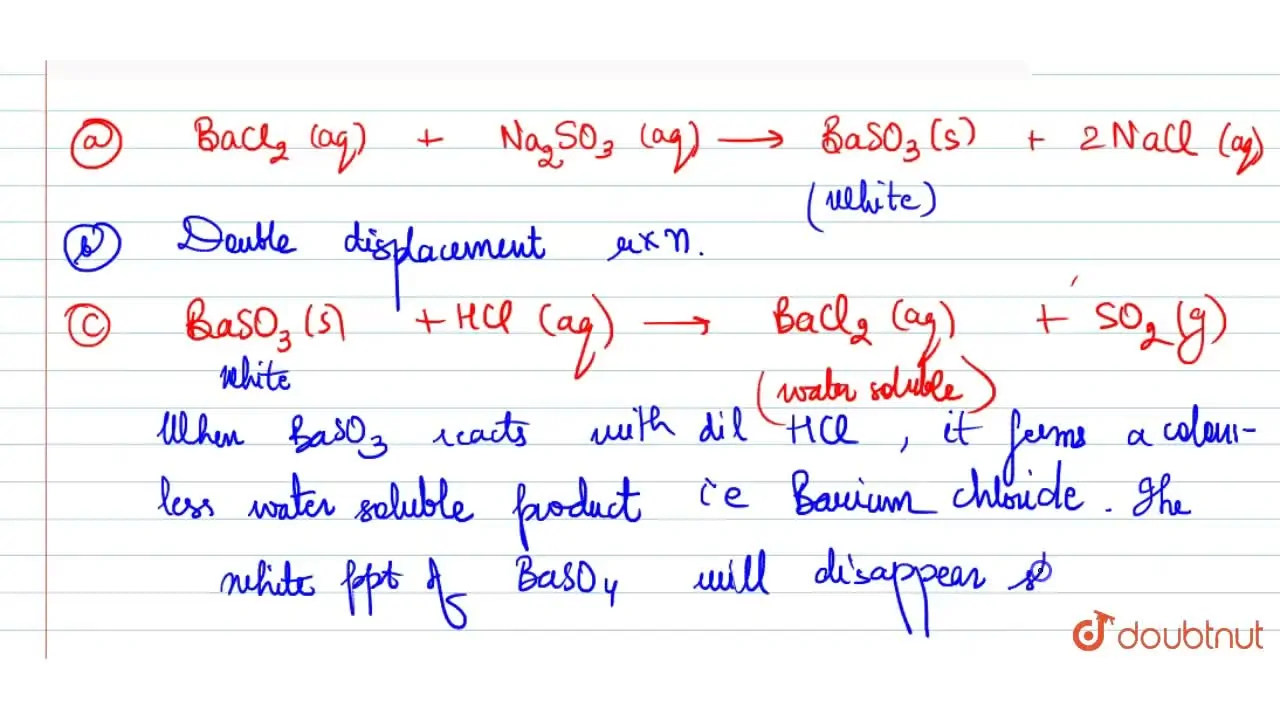 (a) BaCl₂ (aq) + Na₂SO₃ (aq) → BaSO₃ (s) + 2NaCl (aq)
(white)
(b) Double displacement rxn.
(c) BaSO₃ (s) + HCl (aq) → BaCl₂ (aq) + SO₂ (g)
white (water soluble)
When BaSO₃ reacts with dil HCl , it forms a colour-
less water soluble product ie Barium chloride. The
white ppt of BaSO₄ will disappear
doubtnut